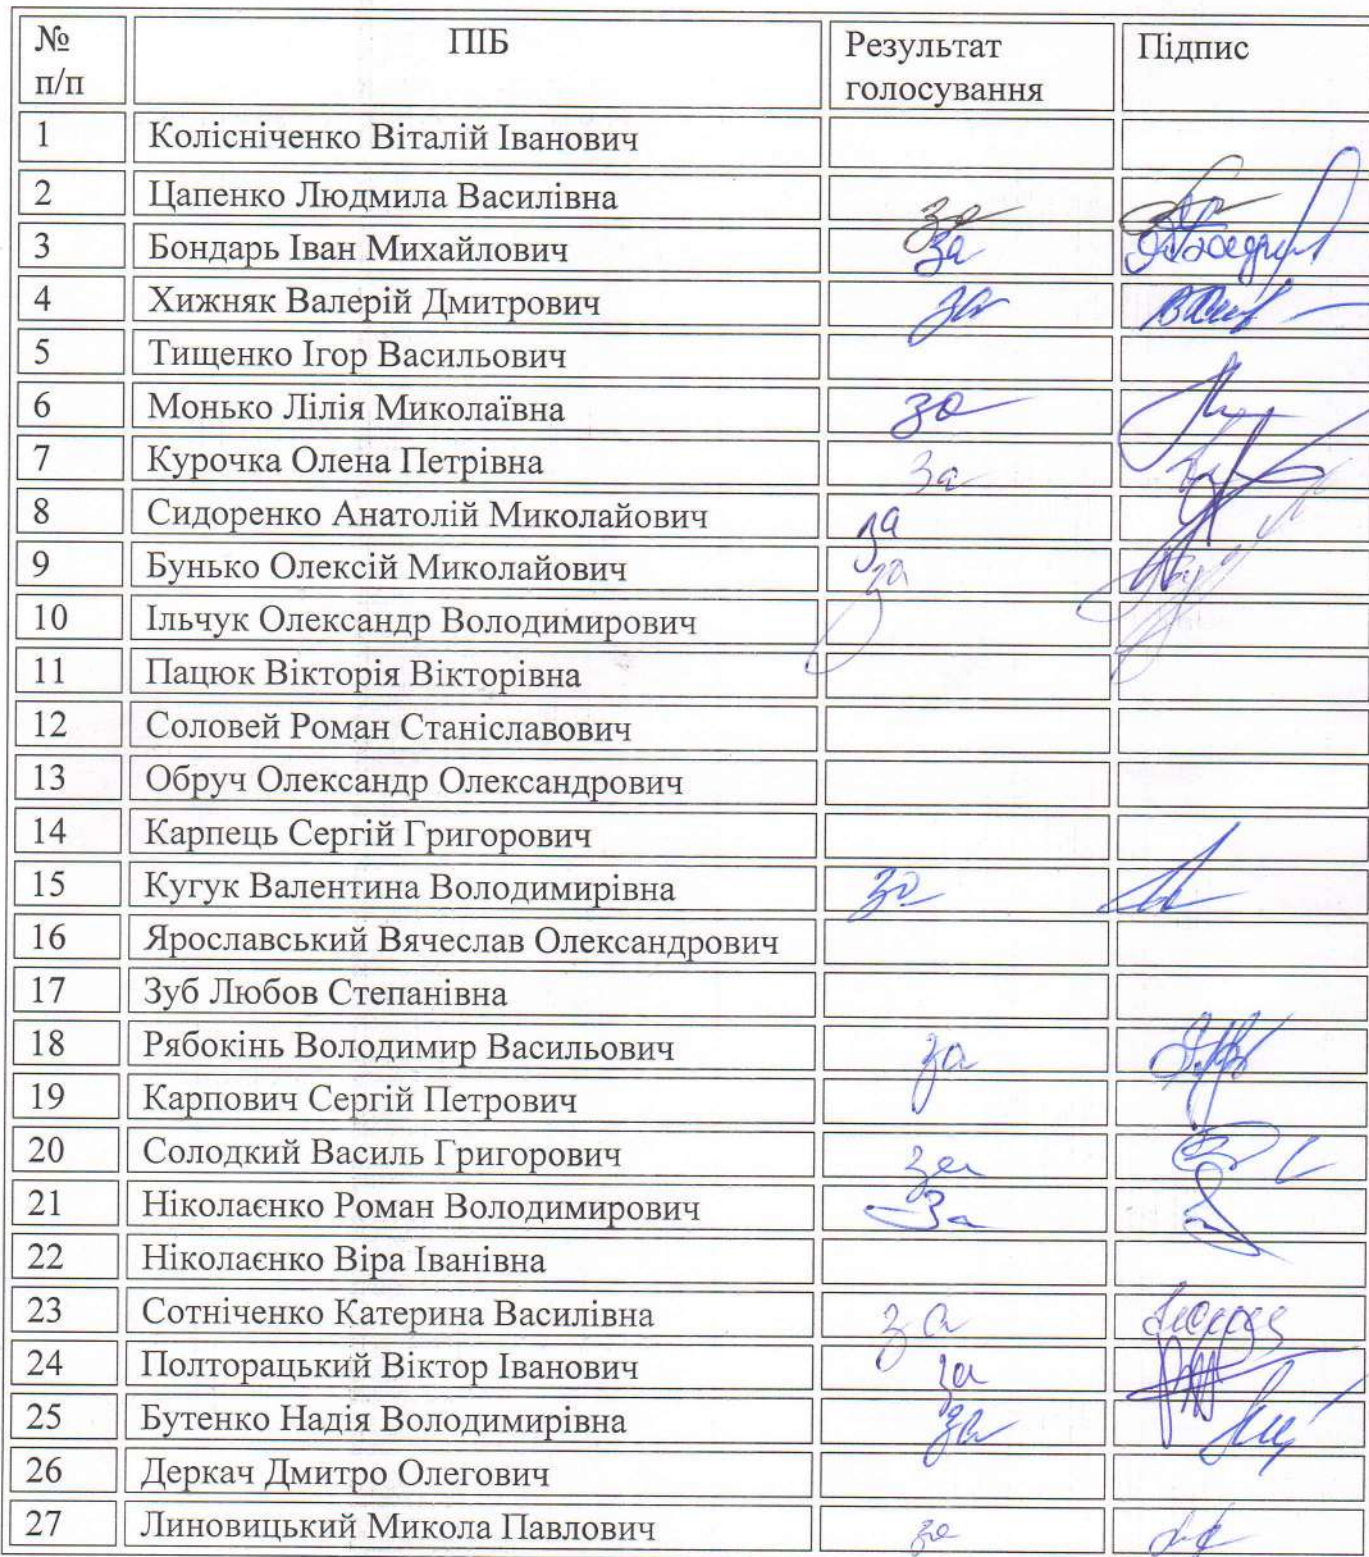 № п/п ПІБ Результат голосування Підпис
1 Колісніченко Віталій Іванович
2 Цапенко Людмила Василівна за
3 Бондарь Іван Михайлович за
4 Хижняк Валерій Дмитрович за
5 Тищенко Ігор Васильович
6 Монько Лілія Миколаївна за
7 Курочка Олена Петрівна за
8 Сидоренко Анатолій Миколайович за
9 Бунько Олексій Миколайович за
10 Ільчук Олександр Володимирович
11 Пацюк Вікторія Вікторівна
12 Соловей Роман Станіславович
13 Обруч Олександр Олександрович
14 Карпець Сергій Григорович
15 Кугук Валентина Володимирівна за
16 Ярославський Вячеслав Олександрович
17 Зуб Любов Степанівна
18 Рябокінь Володимир Васильович за
19 Карпович Сергій Петрович
20 Солодкий Василь Григорович за
21 Ніколаєнко Роман Володимирович за
22 Ніколаєнко Віра Іванівна
23 Сотніченко Катерина Василівна за
24 Полторацький Віктор Іванович за
25 Бутенко Надія Володимирівна за
26 Деркач Дмитро Олегович
27 Линовицький Микола Павлович за